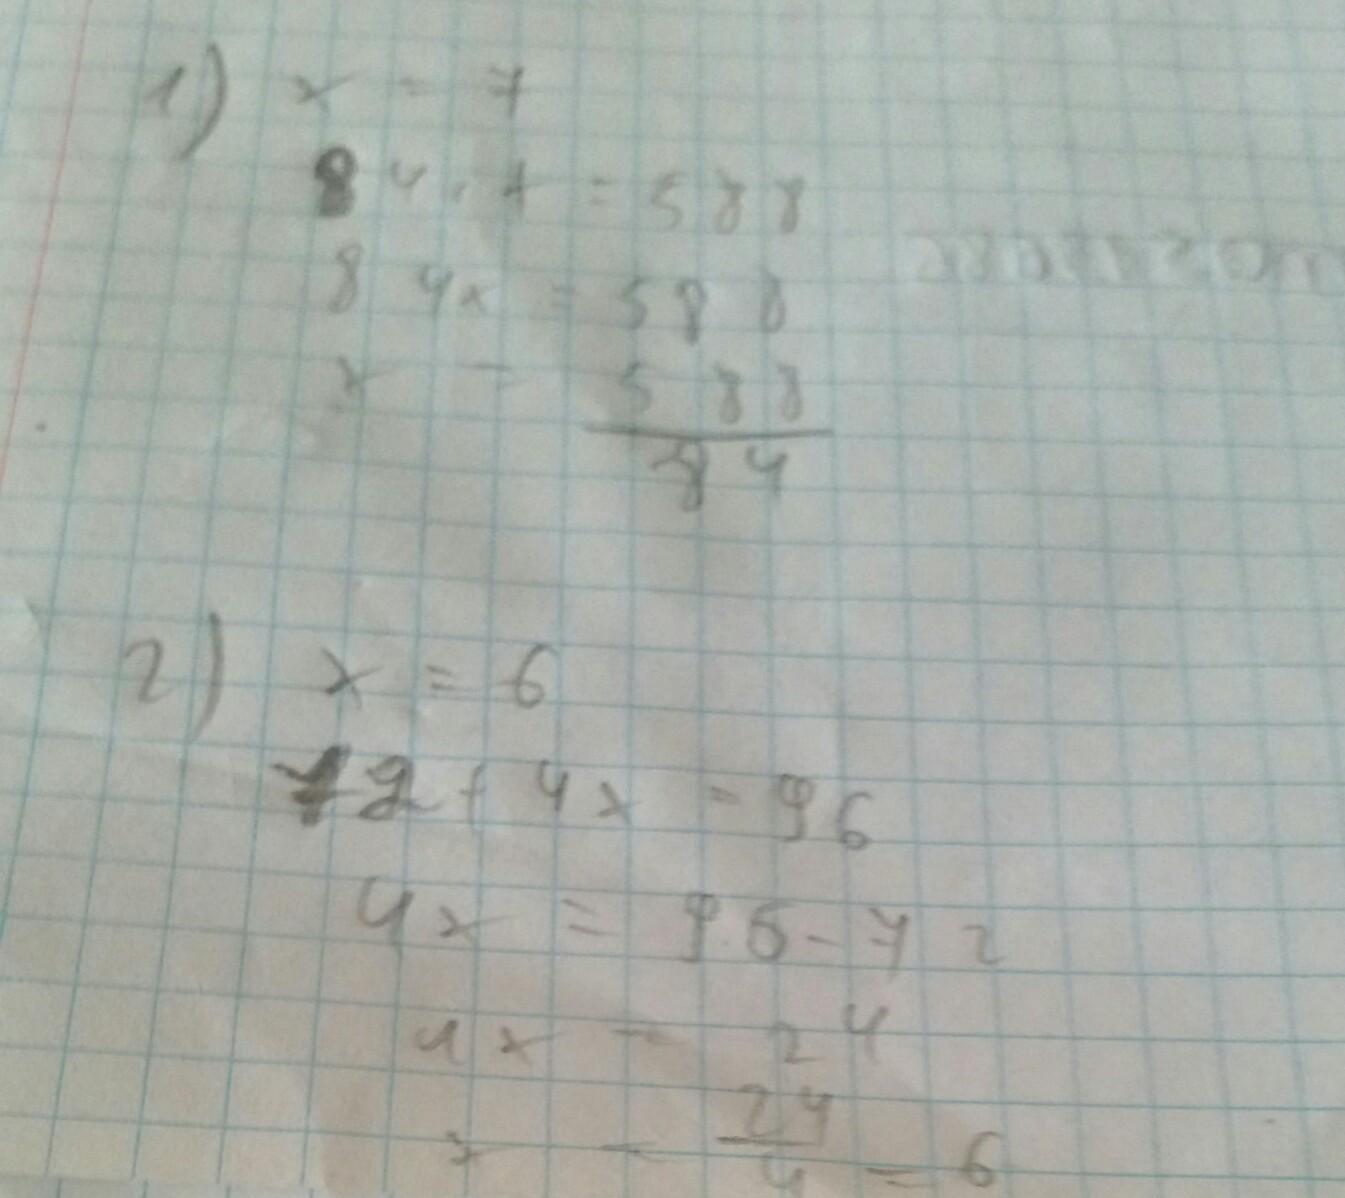 1) x = 7
84 · 7 = 588
84x = 588
x = 588
84
2) x = 6
72 + 4x = 96
4x = 96 - 72
4x = 24
x = 24/4 = 6